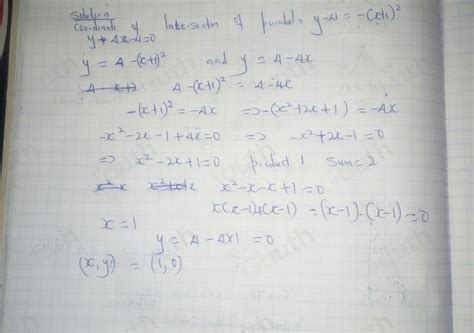 Solution
Coordinate of Intersection of parabola y-4 = -(x+1)²
y+4x-4=0
y = 4-(x+1)² and y = 4-4x
4-(x+1)² = 4-4x
-(x+1)² = -4x => -(x²+2x+1) = -4x
-x²-2x-1+4x=0 => -x²+2x-1=0
=> x²-2x+1=0 product 1 Sum=2
x²-x-x+1=0
x(x-1)-1(x-1) = (x-1)(x-1)=0
x=1
y = 4-4x1 = 0
(x,y) = (1,0)